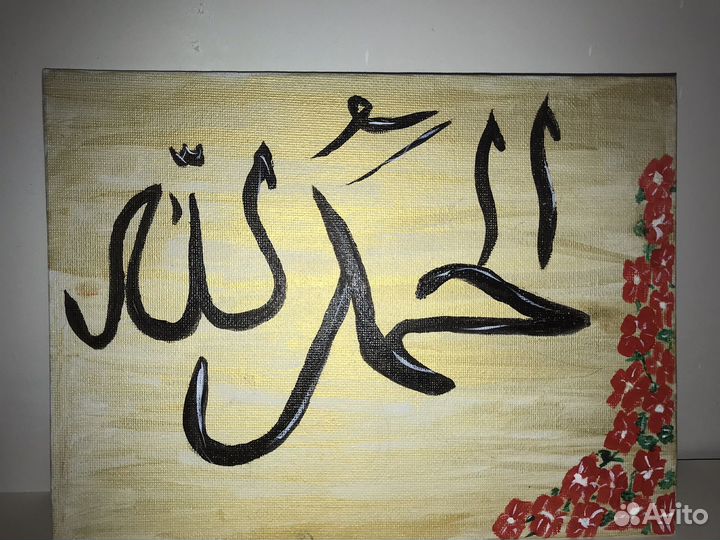 الحمدُ لله
Avito